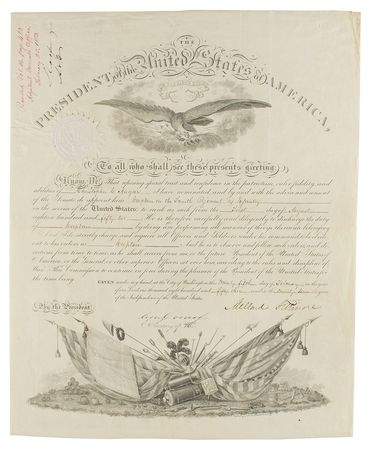 THE
PRESIDENT of the United States of AMERICA,
To all who shall see these presents greeting:
Know Ye, That reposing special trust and confidence in the patriotism, valor, fidelity, and
abilities of Christopher C. Augur I have nominated, and by and with the advice and consent
of the Senate do appoint him Captain in the Fourth Regiment of Infantry
in the service of the United States: to rank as such from the first day of August
eighteen hundred and fifty two He is therefore carefully and diligently to discharge the duty
of Captain by doing and performing all manner of things thereunto belonging.
And I do strictly charge, and require all Officers and Soldiers under his command to be obedi-
ent to his orders as Captain And he is to observe and follow such orders, and di-
rections, from time to time, as he shall receive from me, or the future President of the United States
of America, or the General or other superior Officers set over him, according to the rules and discipline of
War. This Commission to continue in force during the pleasure of the President of the United States, for
the time being.
GIVEN under my hand, at the City of Washington, this day of February in the year
of our Lord one thousand eight hundred and fifty three and in the year
of the Independence of the United States.
By the President
Millard Fillmore
Secretary of War